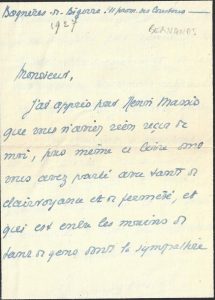 Bagnères-de-Bigorre. 11 prom. des Coustous
1927
BERNANOS
Monsieur,
J'ai appris par Henri Massis
que vous n'aviez rien reçu de
moi, pas même ce livre dont
vous avez parlé avec tant de
clairvoyance et de fermeté, et
qui est entre les mains de
tant de gens dont la sympathie